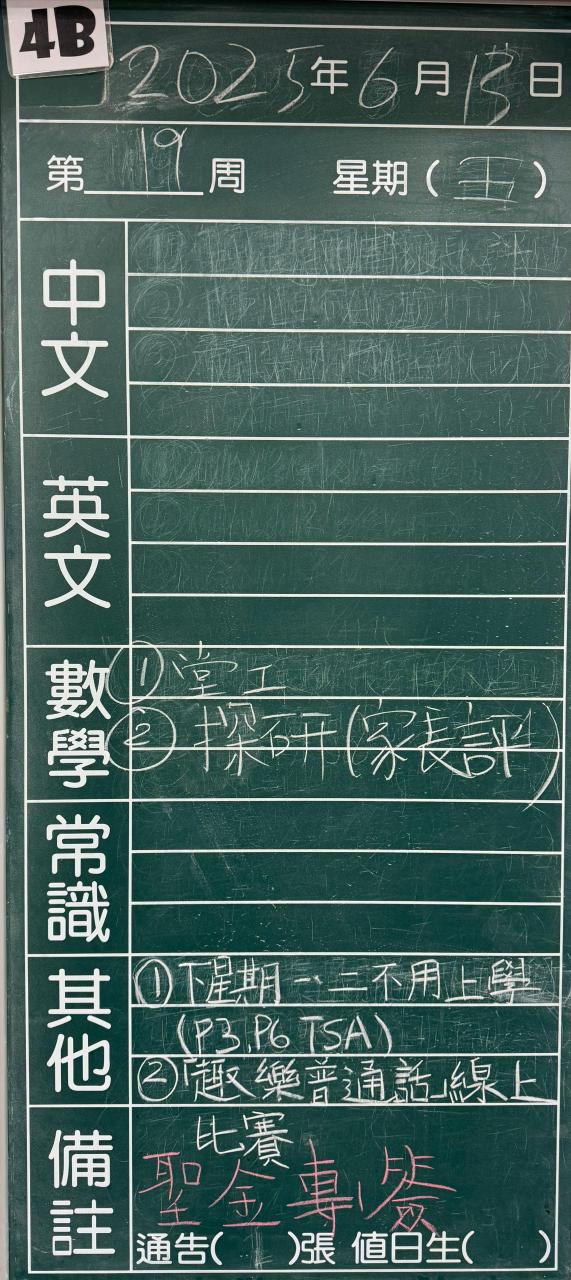 4B
2025年6月13日
第19周 星期(五)
中文
英文
數學
①堂工
②探研(家長評)
常識
其他
①下星期一、二不用上學
(P3,P6 TSA)
②「趣樂普通話」線上
比賽
備註
聖金專簽
通告(1)張 值日生( )